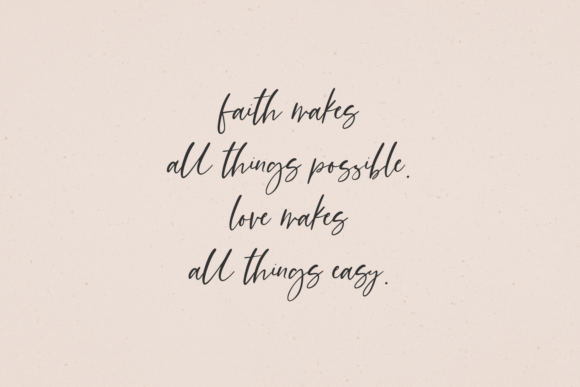 faith makes
all things possible.
love makes
all things easy.